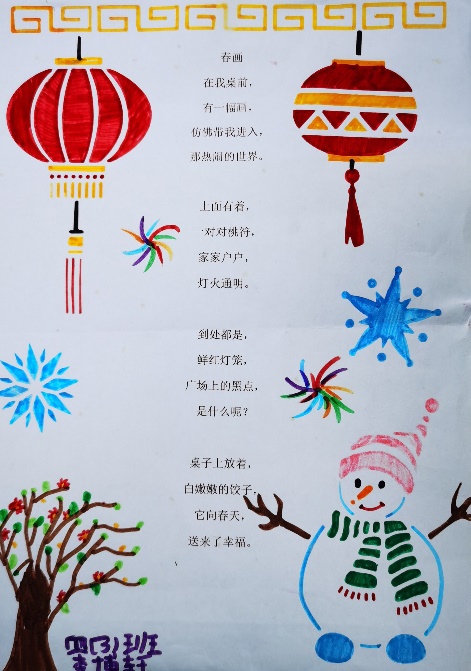 春画
在我桌前，
有一幅画，
仿佛带我进入，
那热闹的世界。
上面有着，
一对对桃符，
家家户户，
灯火通明。
到处都是，
鲜红灯笼，
广场上的黑点，
是什么呢？
桌子上放着，
白嫩嫩的饺子，
它向春天，
送来了幸福。
四(3)班